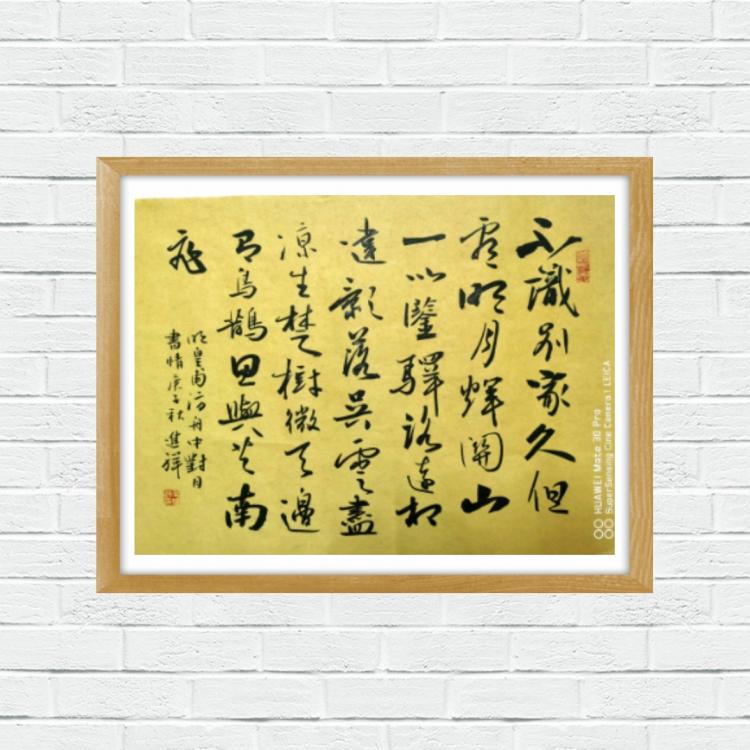 不識別家久但
看明月煇關山
一以鑒驛路遠相
違影落吳雲盡
涼生楚樹微天邊
有烏鵲思與共南
飛
明皇甫汸舟中對月
書情庚子秋 進祥
HUAWEI Mate 30 Pro
SuperSensing Cine Camera | LEICA